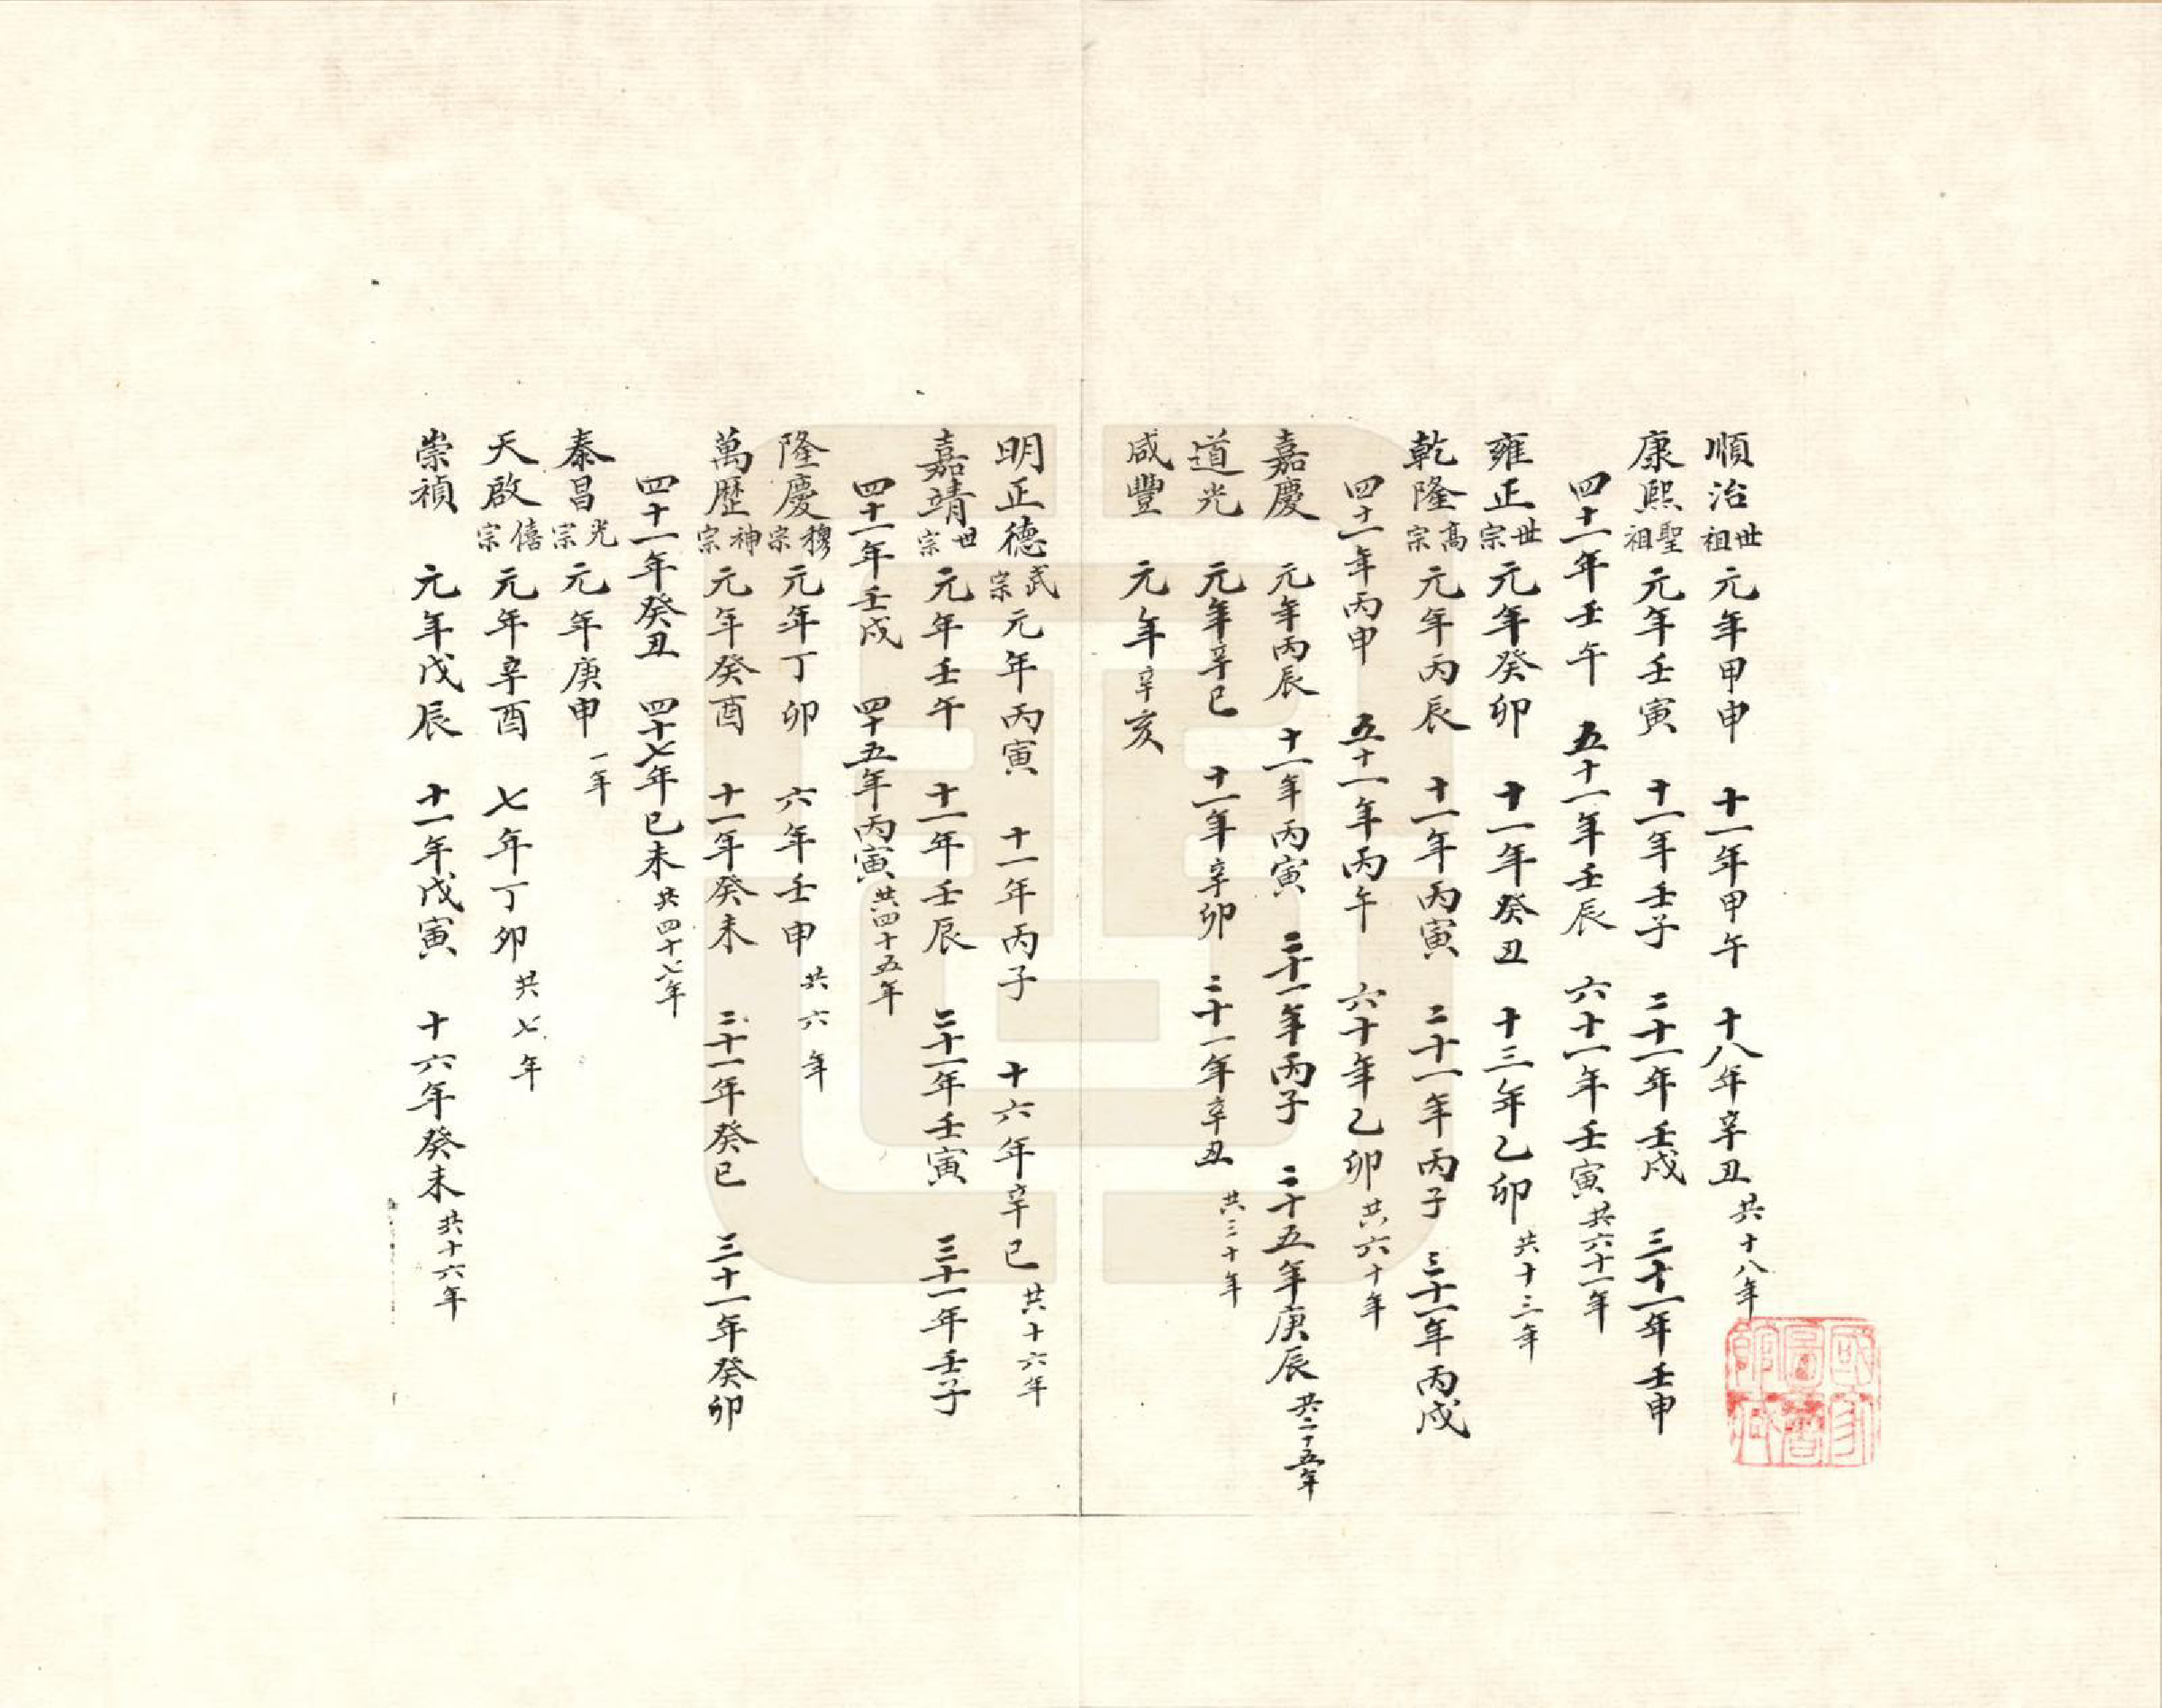 順治世祖元年甲申 十一年甲午 十八年辛丑共十八年
康熙聖祖元年壬寅 十一年壬子 二十一年壬戌 三十一年壬申
四十一年壬午 五十一年壬辰 六十一年壬寅共六十一年
雍正世宗元年癸卯 十一年癸丑 十三年乙卯共十三年
乾隆高宗元年丙辰 十一年丙寅 二十一年丙子 三十一年丙戌
四十一年丙申 五十一年丙午 六十年乙卯共六十年
嘉慶 元年丙辰 十一年丙寅 二十一年丙子 二十五年庚辰共二十五年
道光 元年辛巳 十一年辛卯 二十一年辛丑 共三十年
咸豐 元年辛亥
明正德武宗元年丙寅 十一年丙子 十六年辛巳共十六年
嘉靖世宗元年壬午 十一年壬辰 二十一年壬寅 三十一年壬子
四十一年壬戌 四十五年丙寅共四十五年
隆慶穆宗元年丁卯 六年壬申共六年
萬歷神宗元年癸酉 十一年癸未 二十一年癸巳 三十一年癸卯
四十一年癸丑 四十七年已未共四十七年
泰昌光宗元年庚申一年
天啟僖宗元年辛酉 七年丁卯共七年
崇禎 元年戊辰 十一年戊寅 十六年癸未共十六年
國家圖書館藏